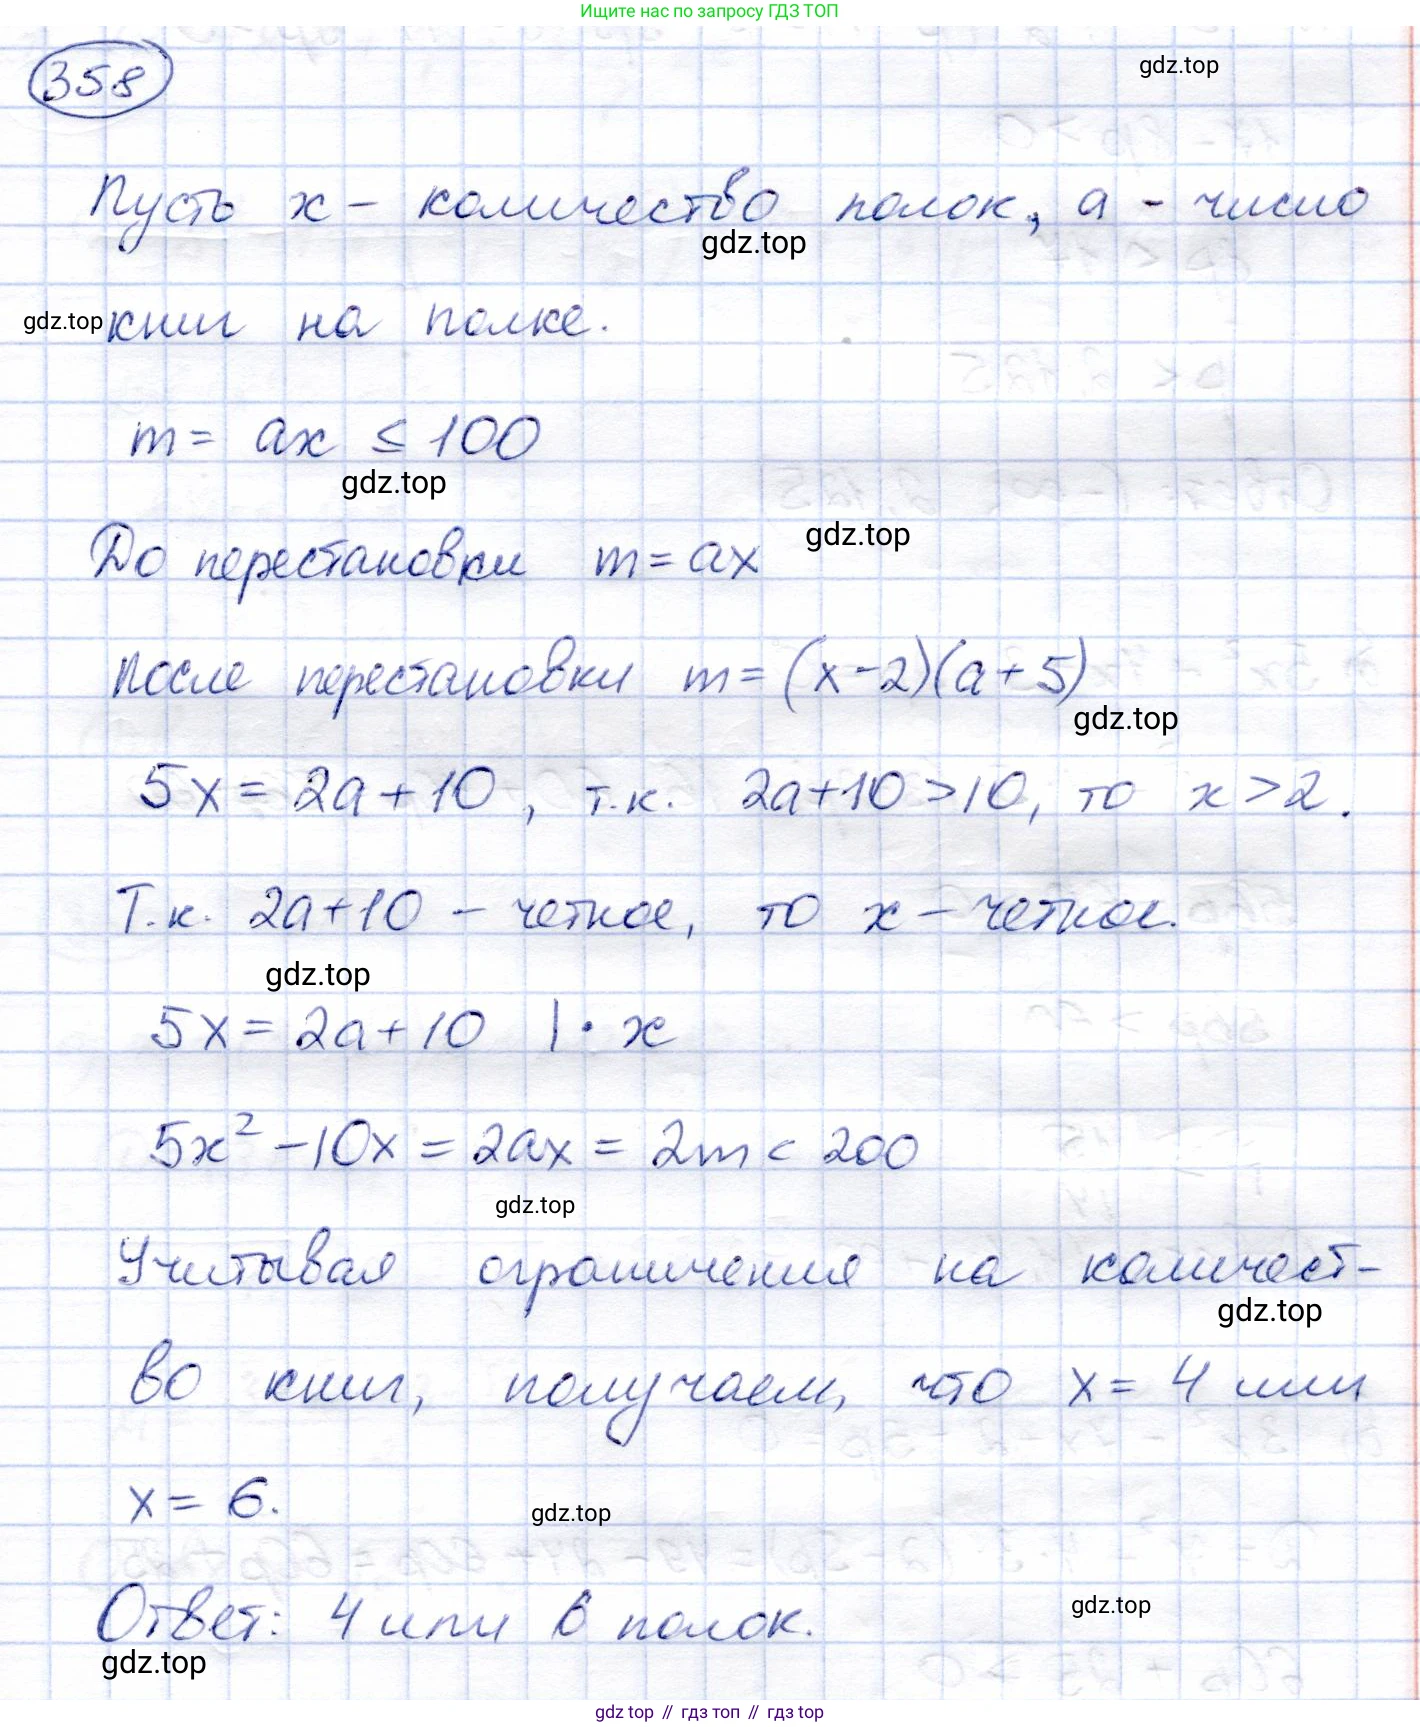 Ищите нас по запросу ГДЗ ТОП
358
gdz.top
Пусть x - количество полок, a - число
gdz.top
gdz.top
книг на полке.
m = ax ≤ 100
gdz.top
gdz.top
До перестановки m = ax
После перестановки m = (x-2)(a+5)
gdz.top
5x = 2a + 10, т.к. 2a+10 > 10, то x > 2.
Т.к. 2a+10 - четное, то x - четное.
gdz.top
5x = 2a + 10 | · x
5x² - 10x = 2ax = 2m < 200
gdz.top
Учитывая ограничения на количест-
gdz.top
во книг, получаем, что x = 4 или
x = 6.
gdz.top
Ответ: 4 или 6 полок.
gdz.top
gdz.top
gdz.top // гдз топ // gdz.top